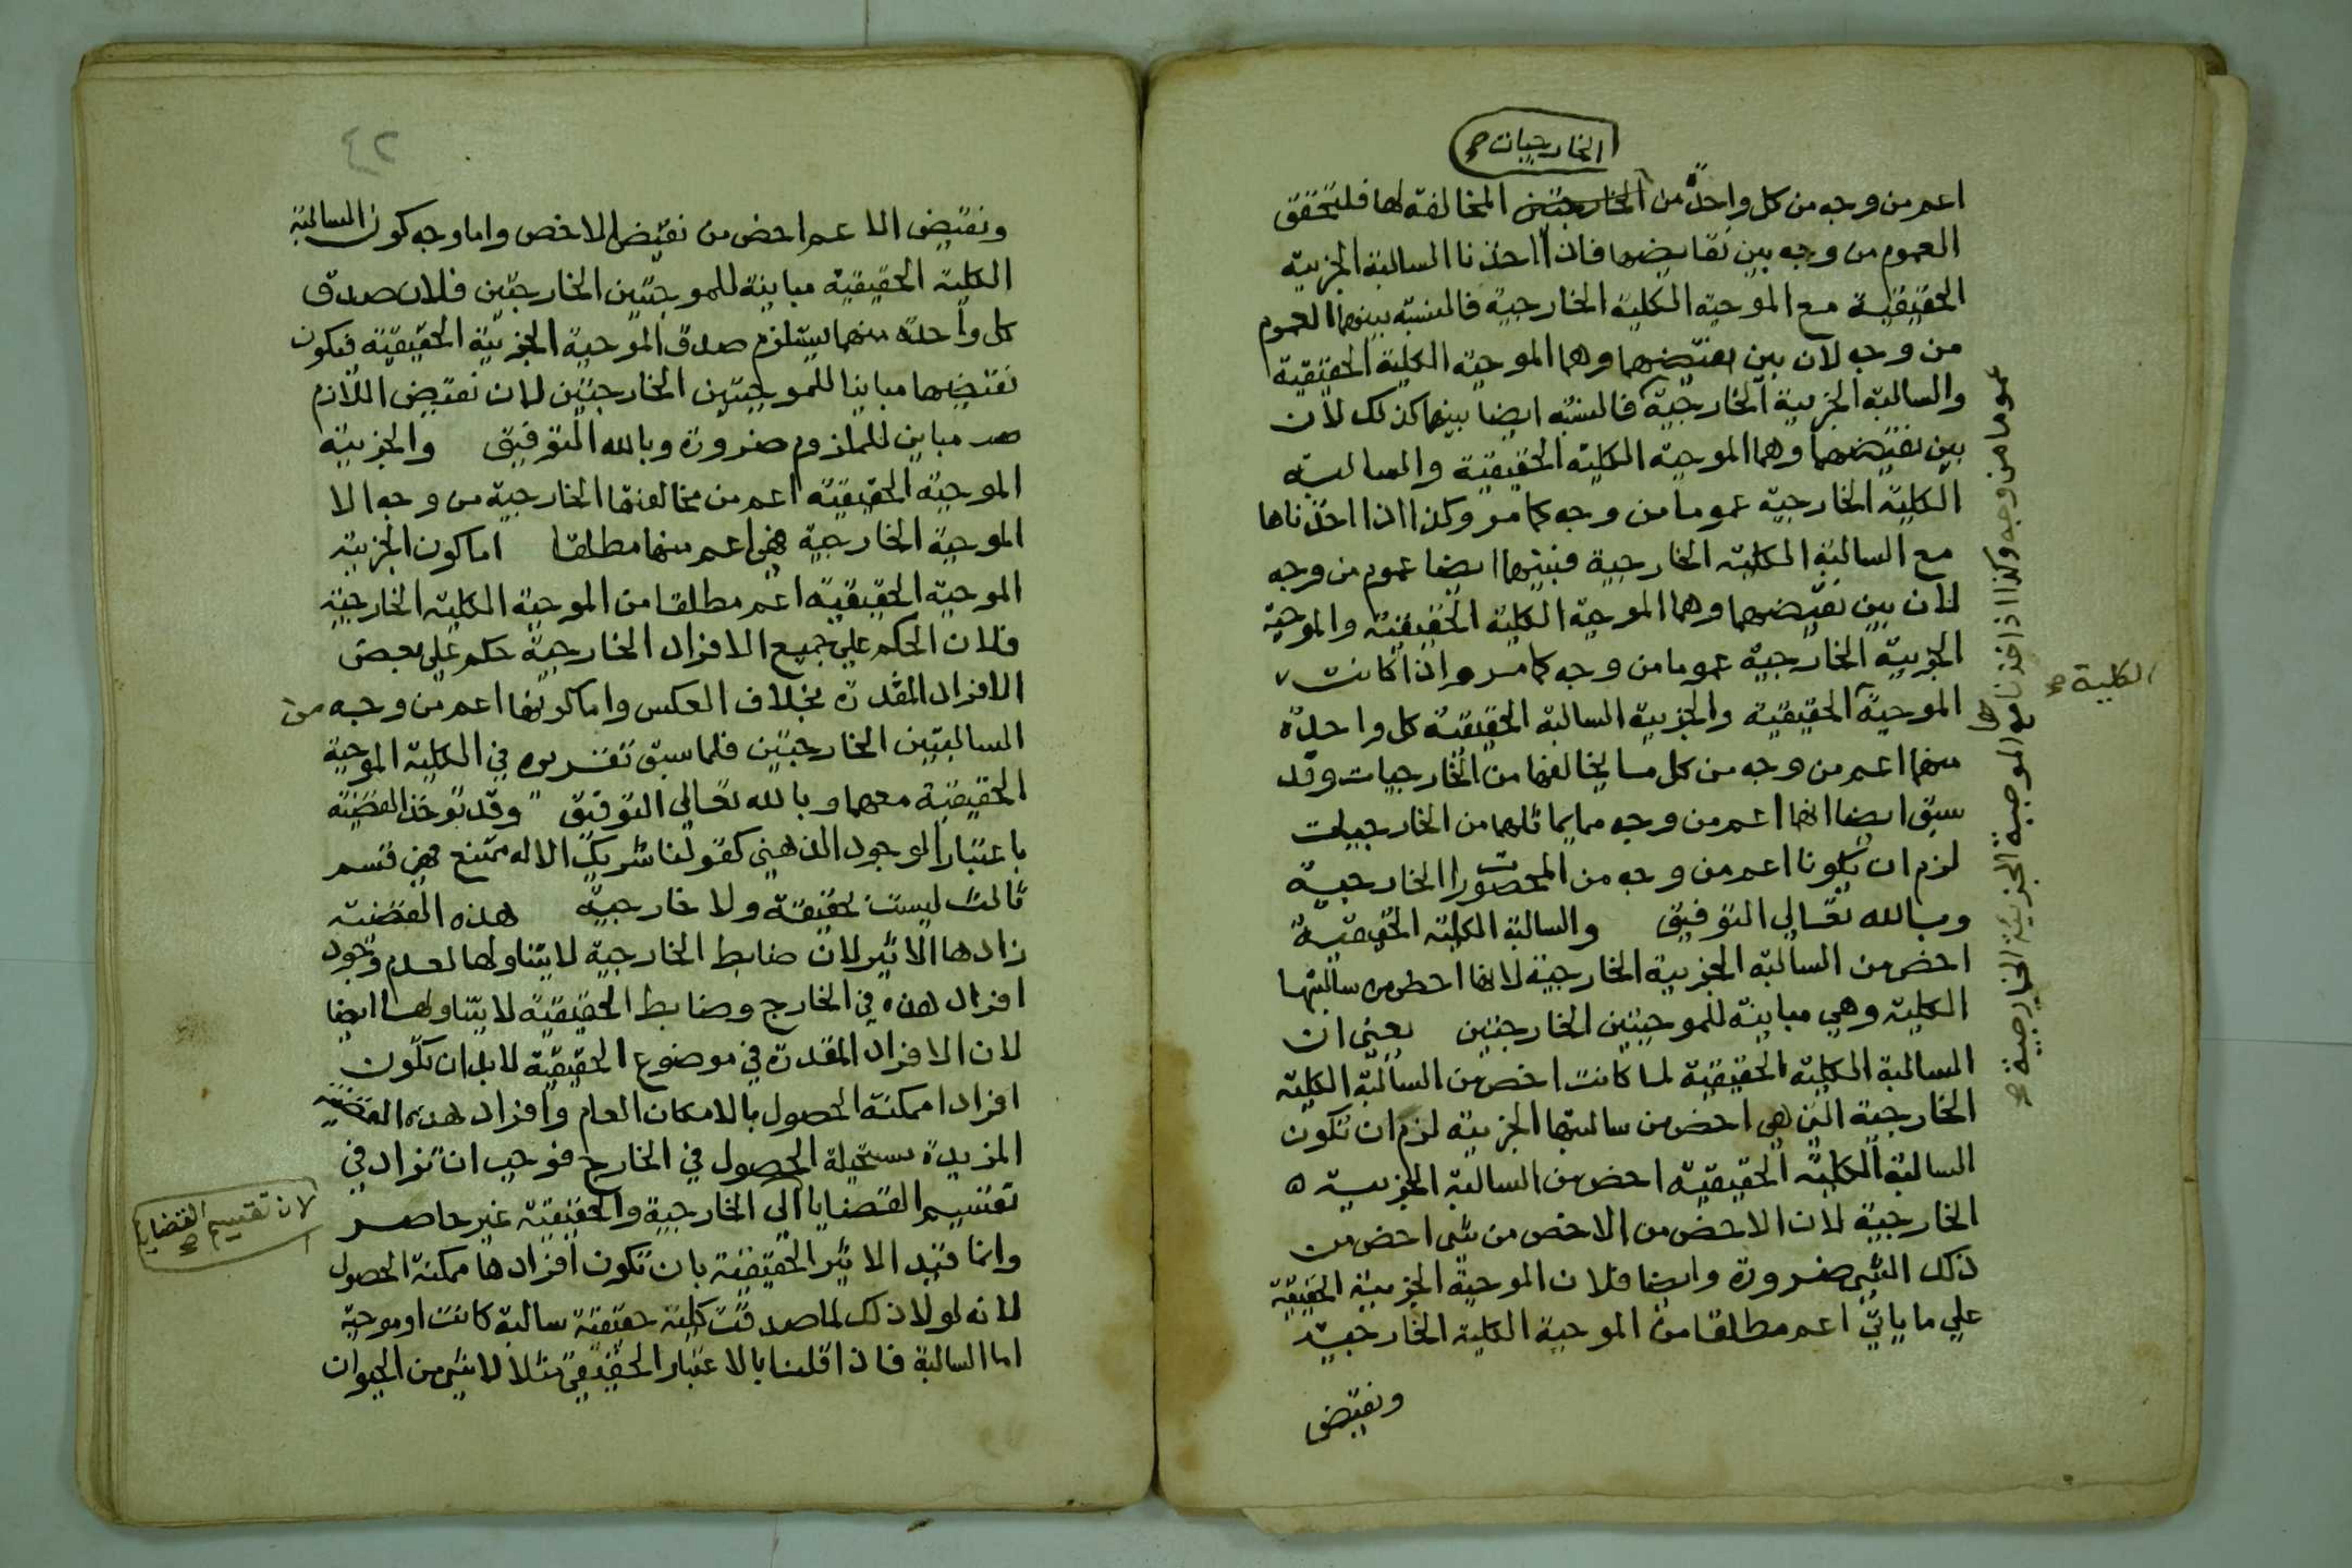 الخارجيات صح
اعم من وجه من كل واحدة من الخارجيتين المخالفة لها فليتحقق
العموم من وجه بين نقايضهما فان اخذنا السالبة الجزيية
الحقيقية مع الموجبة الكلية الخارجية فالنسبة بينهما العموم
من وجه لان بين نقيضيهما وهما الموجبة الكلية الحقيقية
والسالبة الجزيية الخارجية فالنسبة ايضا بينهما كذلك لان
بين نقيضيهما وهما الموجبة الكلية الحقيقية والسالبة
الكلية الخارجية عموما من وجه كما مر وكذا اذا اخذناها
مع السالبة الكلية الخارجية فبينهما ايضا عموم من وجه
لان بين نقيضيهما وهما الموجبة الكلية الحقيقية والموجبة
الجزيية الخارجية عموما من وجه كما مر واذا كانت
الموجبة الحقيقية والجزيية السالبة الحقيقية كل واحدة
منهما اعم من وجه من كل ما يخالفها من الخارجيات وقد
سبق ايضا انهما اعم من وجه مما يماثلهما من الخارجيات
لزم ان يكونا اعم من وجه من المحصورات الخارجية
وبالله تعالي التوفيق والسالبة الكلية الحقيقية
اخص من السالبة الجزيية الخارجية لانها اخص من سالبتها
الكلية وهي مباينة للموجبتين الخارجتين يعني ان
السالبة الكلية الحقيقية لما كانت اخص من السالبة الكلية
الخارجية التي هي اخص من سالبتها الجزيية لزم ان تكون
السالبة الكلية الحقيقية اخص من السالبة الجزيية
الخارجية لان الاخص من الاخص من شي اخص من
ذلك الشي ضرورة وايضا فلان الموجبة الجزيية الحقيقية
علي ما ياتي اعم مطلقا من الموجبة الكلية الخارجية
ونقيض
عموما من وجه وكذا اذا اخذناها مع الموجبة الجزيية الخارجية صح
الكلية صح
٤٢
ونقيض الاعم اخص من نقيض الاخص واما وجه كون السالبة
الكلية الحقيقية مباينة للموجبتين الخارجتين فلان صدق
كل واحدة منهما يستلزم صدق الموجبة الجزيية الحقيقية فيكون
نقيضهما مباينا للموجبتين الخارجيتين لان نقيض اللازم
مباين للملزوم ضرورة وبالله التوفيق والجزيية
الموجبة الحقيقية اعم من مخالفتها الخارجية من وجه الا
الموجبة الخارجية فهي اعم منها مطلقا اما كون الجزيية
الموجبة الحقيقية اعم مطلقا من الموجبة الكلية الخارجية
فلان الحكم علي جميع الافراد الخارجية حكم علي بعض
الافراد المقدرة بخلاف العكس واما كونها اعم من وجه من
السالبتين الخارجيتين فلما سبق تقريره في الكلية الموجبة
الحقيقية معهما وبالله تعالي التوفيق وقد توخذ القضية
باعتبار الوجود الذهني كقولنا شريك الاله ممتنع فهي قسم
ثالث ليست حقيقة ولا خارجية هذه القضية
زادها الاثير لان ضابط الخارجية لا يتناولها لعدم وجود
افراد هذه في الخارج وضابط الحقيقية لا يتناولها ايضا
لان الافراد المقدرة في موضوع الحقيقية لا بد ان تكون
افرادا ممكنة الحصول بالامكان العام وافراد هذه القضية
المزيدة مستحيلة الحصول في الخارج فوجب ان تزاد في
تقسيم القضايا الي الخارجية والحقيقية غير حاصر
وانما قيد الاثير الحقيقية بان تكون افرادها ممكنة الحصول
لانه لولا ذلك لما صدقت كلية حقيقية سالبة كانت او موجبة
اما السالبة فاذا قلنا بالاعتبار الحقيقي مثلا لا شي من الحيوان
لان تقسيم القضايا صح